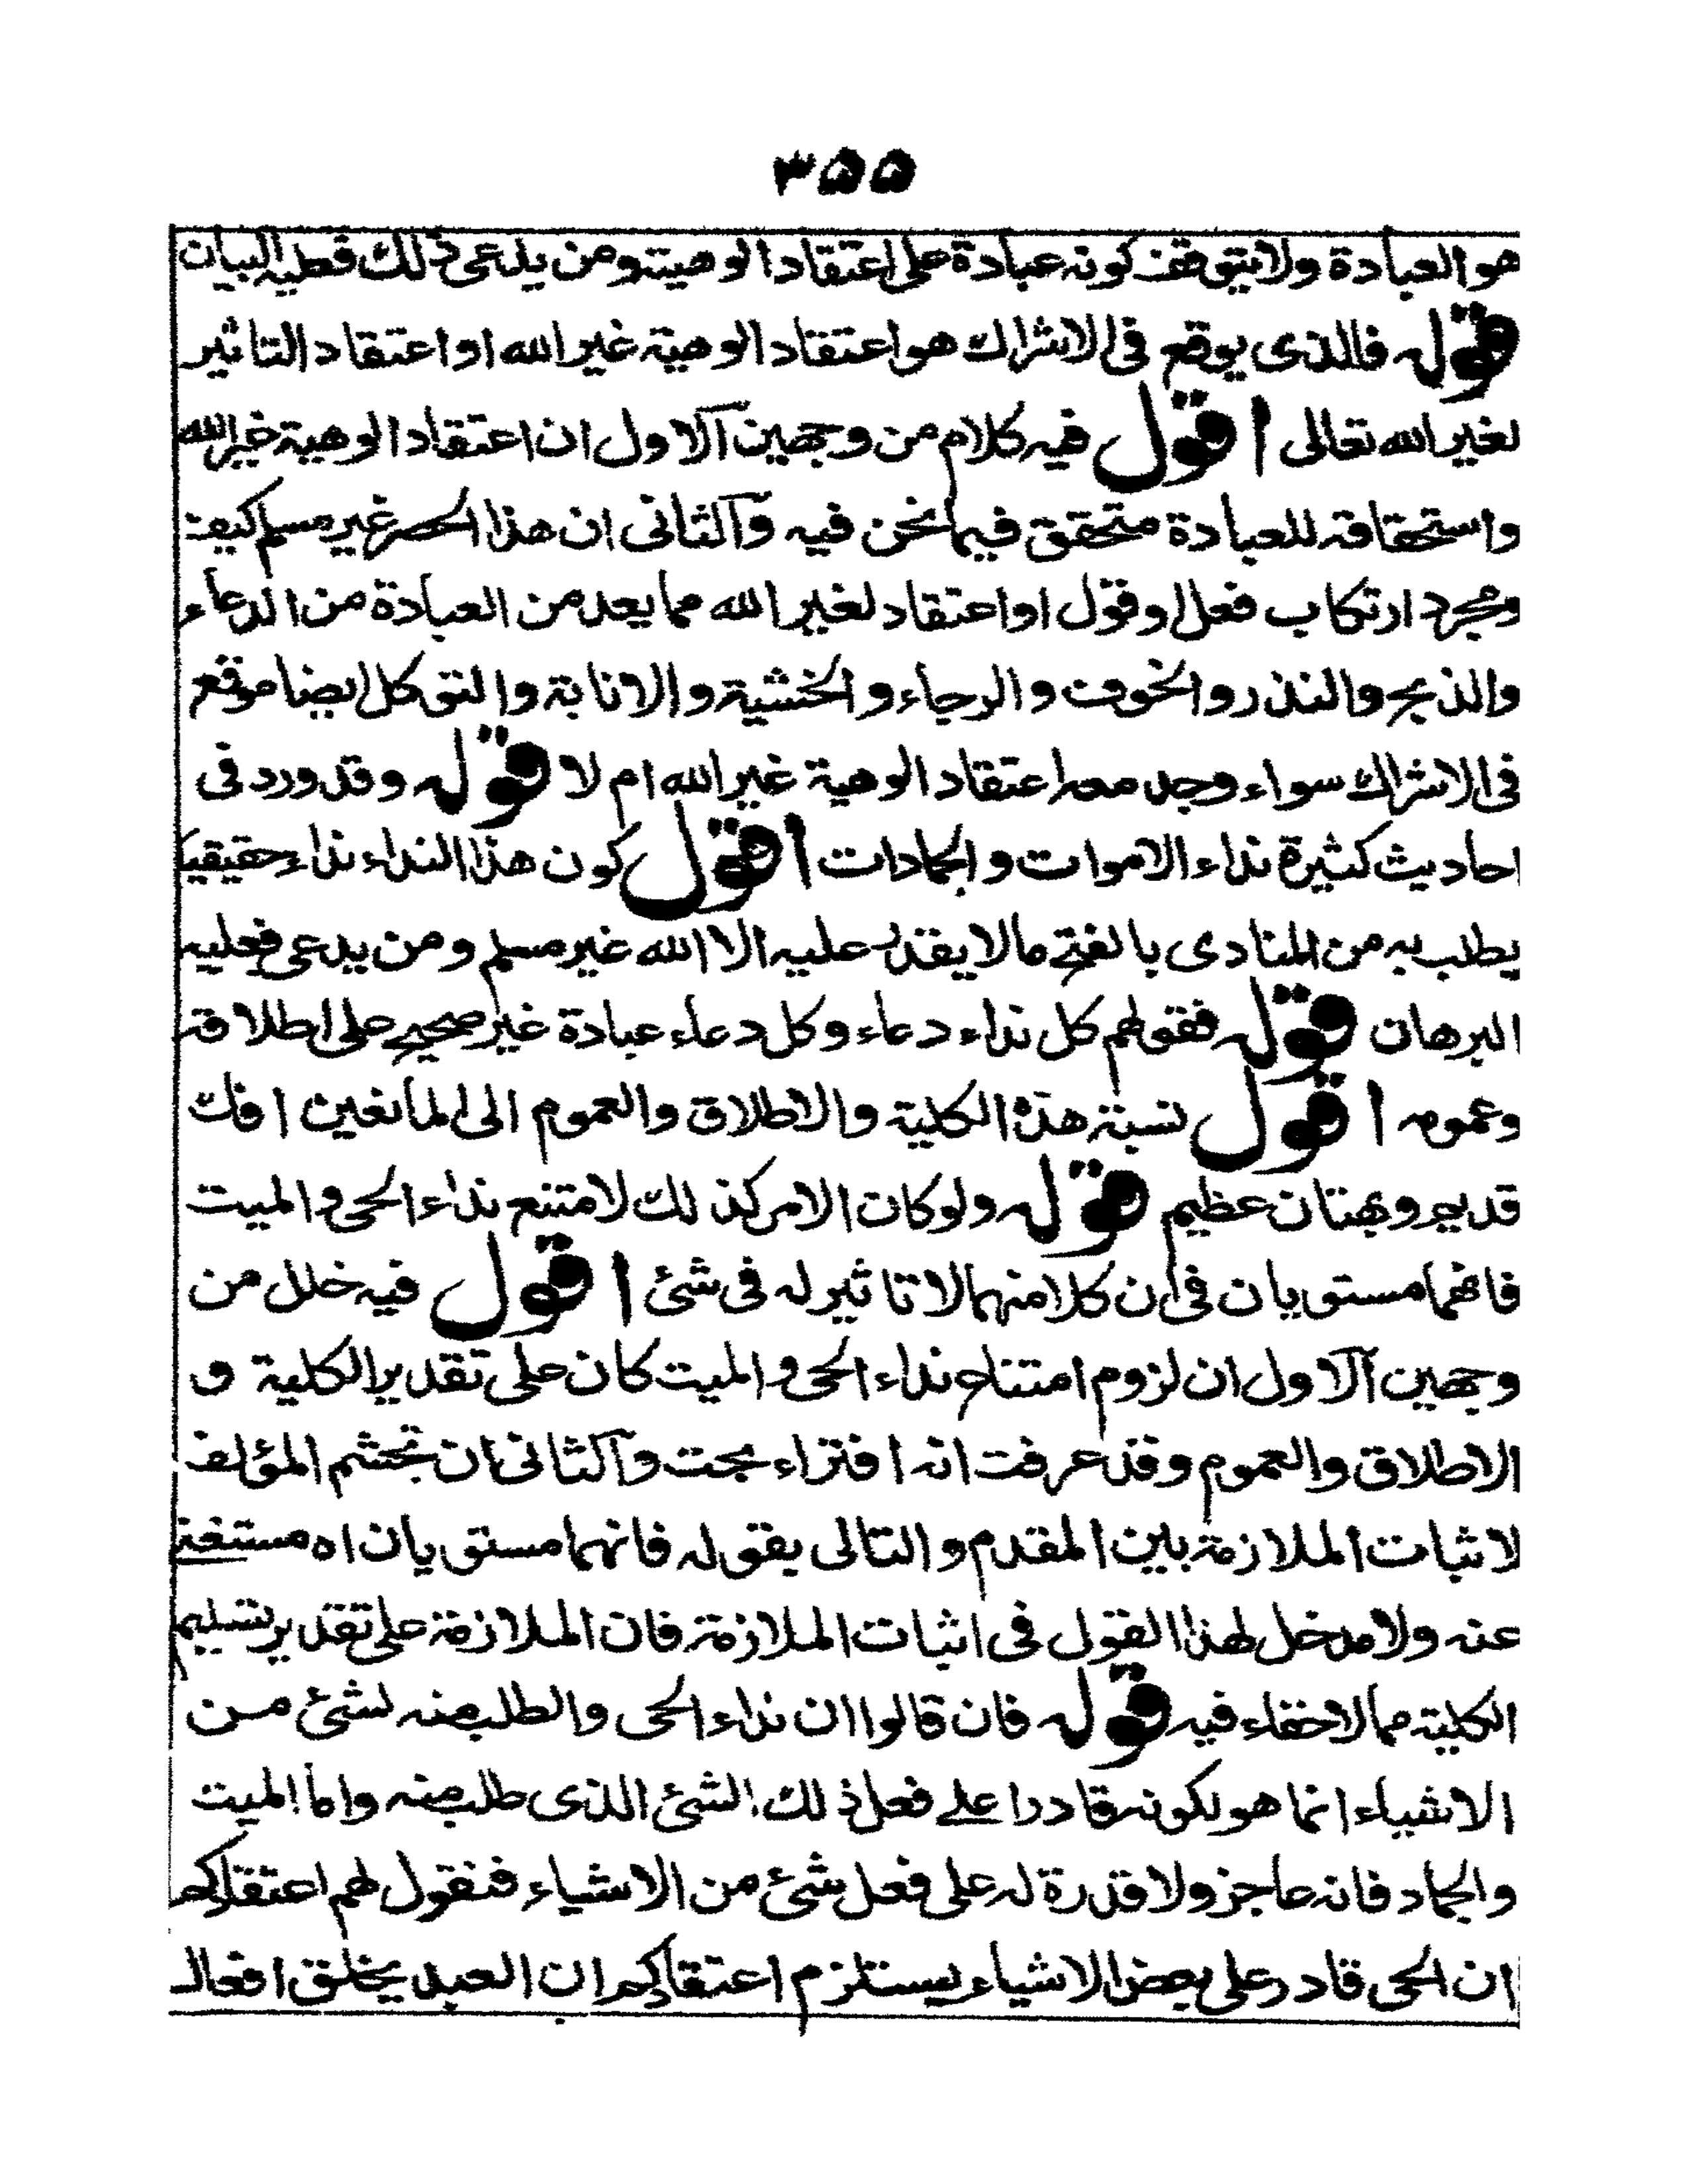 ٣٥٥
هو العبادة ولا يتوقف كونه عبادة على اعتقاد الوهيته ومن يدعى ذلك فعليه البيان
قوله فالذى يوقع فى الاشراك هو اعتقاد الوهية غير الله او اعتقاد التاثير
لغير الله تعالى اقول فيه كلام من وجهين الاول ان اعتقاد الوهية غير الله
واستحقاقه للعبادة متحقق فيما نحن فيه والثانى ان هذا الحصر غير مسلم كيف
ومجرد ارتكاب فعل او قول او اعتقاد لغير الله مما يعد من العبادة من الدعاء
والذبح والنذر والخوف والرجاء والخشية والانابة والتوكل ايضا موقع
فى الاشراك سواء وجد معه اعتقاد الوهية غير الله ام لا قوله وقد ورد فى
احاديث كثيرة نداء الاموات والجمادات اقول كون هذا النداء نداء حقيقيا
يطلب به من المنادى بالفتح مالا يقدر عليه الا الله غير مسلم ومن يدعى فعليه
البرهان قوله فقولهم كل نداء دعاء وكل دعاء عبادة غير صحيح على اطلاقه
وعمومه اقول نسبة هذه الكلية والاطلاق والعموم الى المانعين افك
قديم وبهتان عظيم قوله ولو كان الامر كذلك لامتنع نداء الحى والميت
فانهما مستويان فى ان كلا منهما لا تاثير له فى شئ اقول فيه خلل من
وجهين الاول ان لزوم امتناع نداء الحى والميت كان على تقدير الكلية و
الاطلاق والعموم وقد عرفت انه افتراء بحت والثانى ان تجشم المؤلف
لاثبات الملازمة بين المقدم والتالى بقوله فانهما مستويان اه مستغنى
عنه ولا مدخل لهذا القول فى اثبات الملازمة فان الملازمة على تقدير تسليم
الكلية مما لا خفاء فيه قوله فان قالوا ان نداء الحى والطلب منه لشئ من
الاشياء انما هو لكونه قادرا على فعل ذلك الشئ الذى طلب منه واما الميت
والجماد فانه عاجز ولا قدرة له على فعل شئ من الاشياء فنقول لهم اعتقادكم
ان الحى قادر على بعض الاشياء يستلزم اعتقادكم ان العبد يخلق افعال